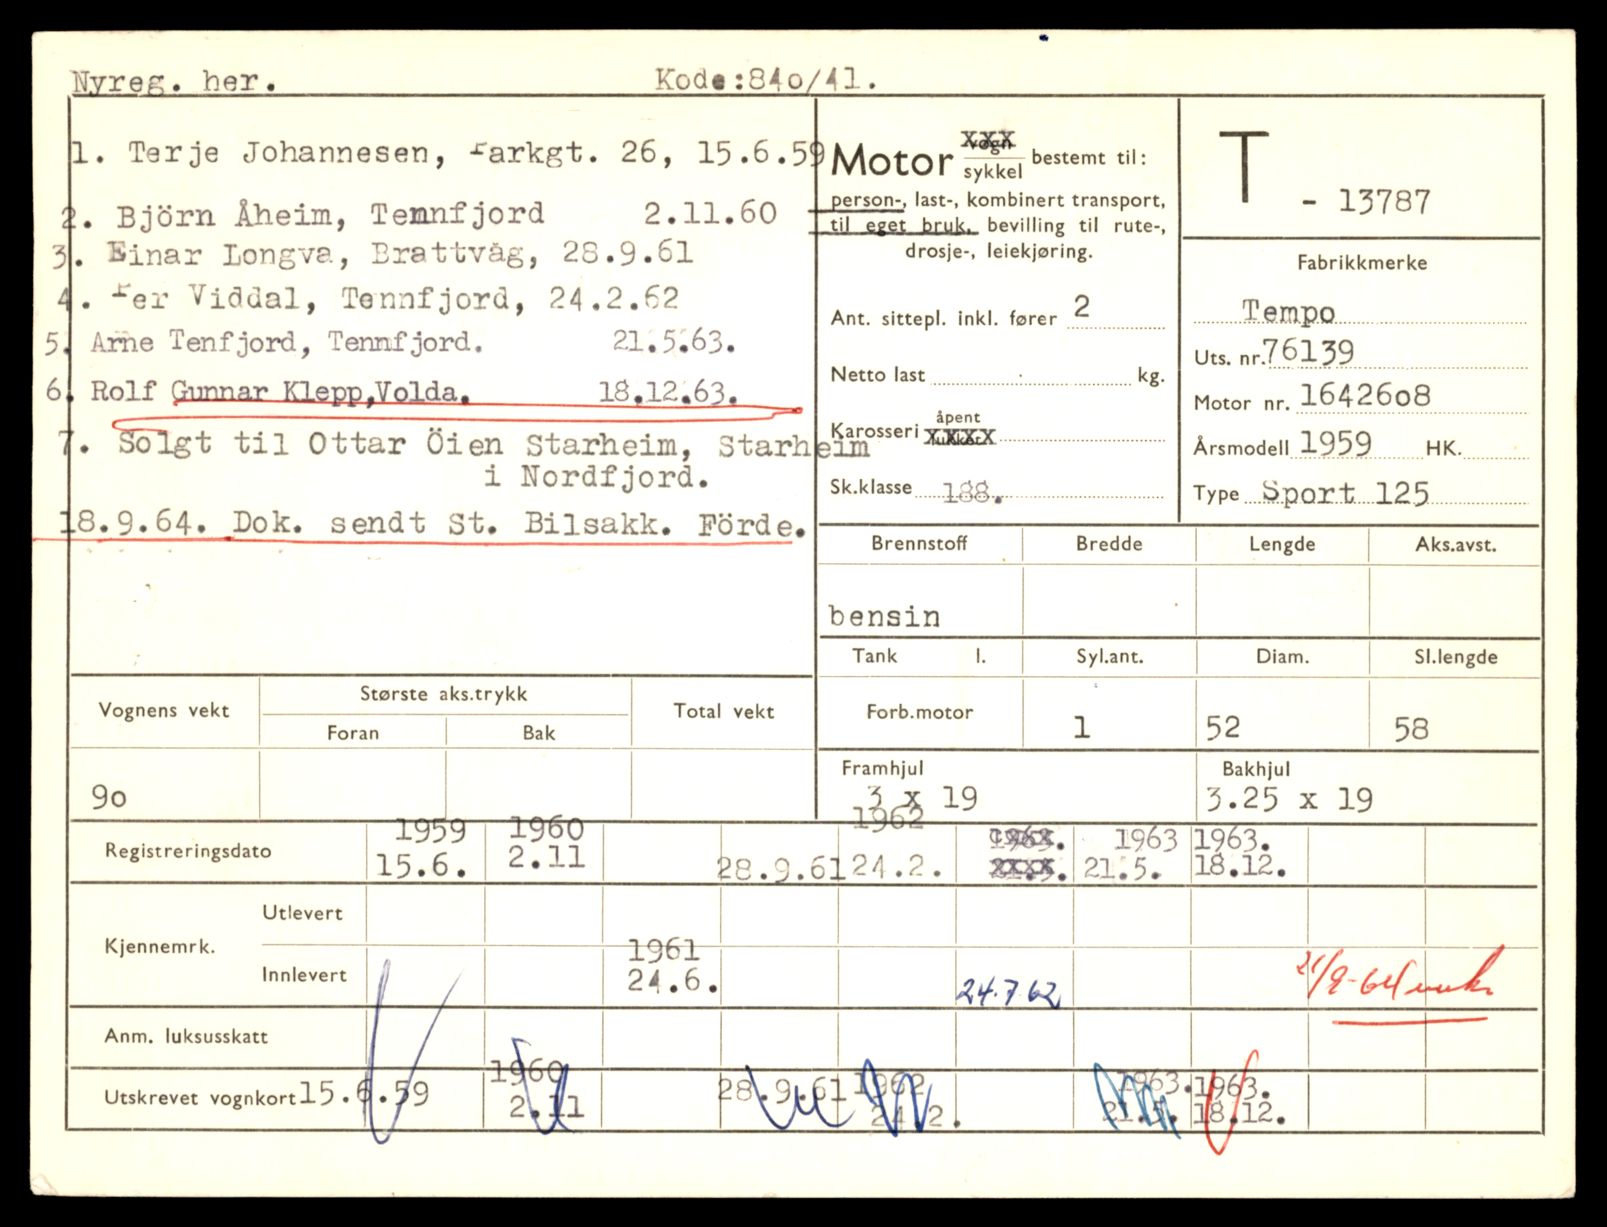 Nyreg. her. Kode:84o/41.
1. Terje Johannesen, Parkgt. 26, 15.6.59
2. Björn Åheim, Temnfjord 2.11.60
3. Einar Longva, Brattvåg, 28.9.61
4. Per Viddal, Tennfjord, 24.2.62
5. Arne Tenfjord, Tennfjord. 21.5.63.
6. Rolf Gunnar Klepp,Volda. 18.12.63.
7. Solgt til Ottar Öien Starheim, Starheim
i Nordfjord.
18.9.64. Dok. sendt St. Bilsakk. Förde.
Motor vogn
sykkel bestemt til:
person-, last-, kombinert transport,
til eget bruk, bevilling til rute-,
drosje-, leiekjøring.
Ant. sittepl. inkl. fører 2
Netto last kg.
Karosseri åpent
lukket
Sk.klasse 188.
T - 13787
Fabrikkmerke
Tempo
Uts. nr. 76139
Motor nr. 16426o8
Årsmodell 1959 HK.
Type Sport 125
Brennstoff Bredde Lengde Aks.avst.
bensin
Tank l. Syl.ant. Diam. Sl.lengde
Forb.motor 1 52 58
Framhjul Bakhjul
3 x 19 3.25 x 19
Vognens vekt Største aks.trykk Total vekt
Foran Bak
9o
Registreringsdato 1959 1960 1962 1963. 1963 1963.
15.6. 2.11 28.9.61 24.2. 21.5. 21.5. 18.12.
Kjennemrk. Utlevert
Innlevert 1961
24.6. 24.7.62 21/9-64
Anm. luksusskatt
Utskrevet vognkort 15.6.59 1960 28.9.61 1962 1963. 1963.
2.11 24.2. 21.5. 18.12.